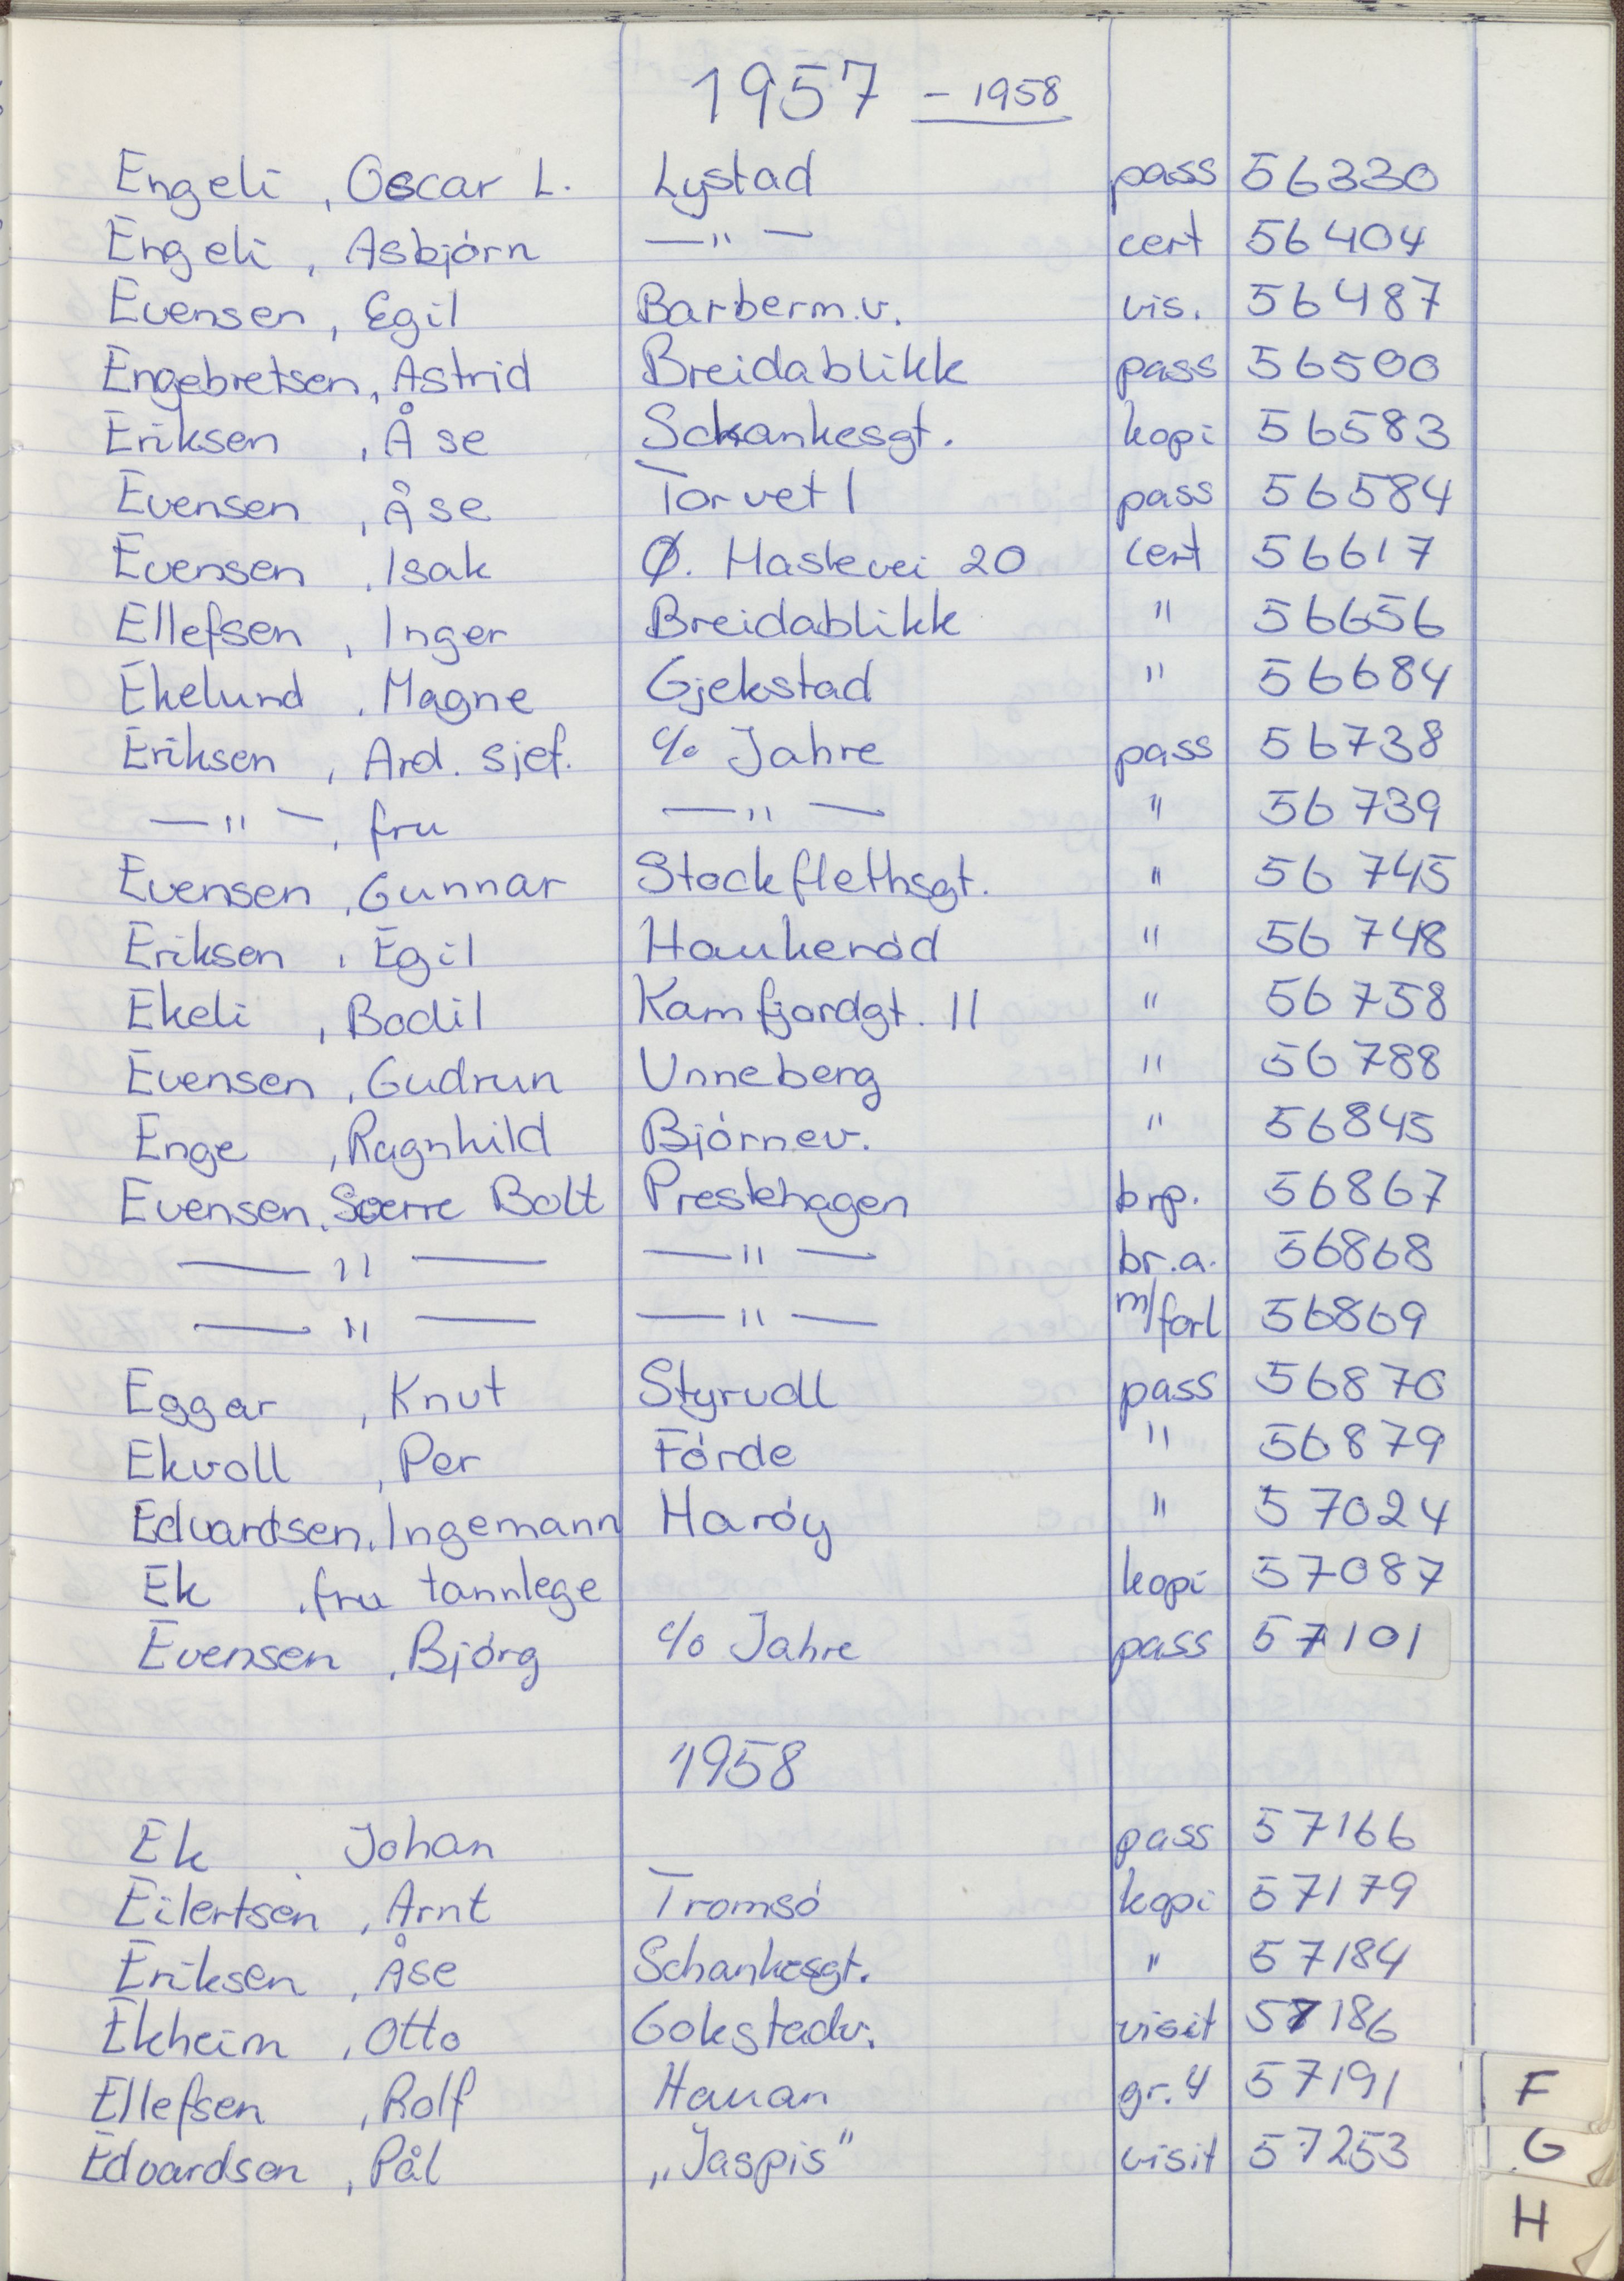 1957 - 1958
Engeli, Oscar L. Lystad pass 56330
Engeli, Asbjórn —"— cert 56404
Evensen, Egil Barberm.v. vis. 56487
Engebretsen, Astrid Breidablikk pass 56500
Eriksen, Åse Schankesgt. kopi 56583
Evensen, Åse Torvet 1 pass 56584
Evensen, Isak Ø. Haslevei 20 cert 56617
Ellefsen, Inger Breidablikk " 56656
Ekelund, Magne Gjekstad " 56684
Eriksen, Ard. sjef. c/o Jahre pass 56738
—"—, fru —"— " 56739
Evensen, Gunnar Stockflethsgt. " 56745
Eriksen, Egil Haukeród " 56748
Ekeli, Bodil Kamfjordgt. 11 " 56758
Evensen, Gudrun Unneberg " 56788
Enge, Ragnhild Bjórnev. " 56845
Evensen, Sverre Bolt Prestehagen brp. 56867
—"— —"— br.a. 56868
—"— —"— m/forl 56869
Eggar, Knut Styrvoll pass 56870
Ekvoll, Per Fórde " 56879
Edvardsen, Ingemann Haróy " 57024
Ek, fru tannlege kopi 57087
Evensen, Bjórg c/o Jahre pass 57101
1958
Ek, Johan pass 57166
Eilertsen, Arnt Tromsó kopi 57179
Eriksen, Åse Schankesgt. " 57184
Ekheim, Otto Gokstadv. visit 57186
Ellefsen, Rolf Hauan gr.4 57191
Edvardsen, Pål „Jaspis" visit 57253
F
G
H